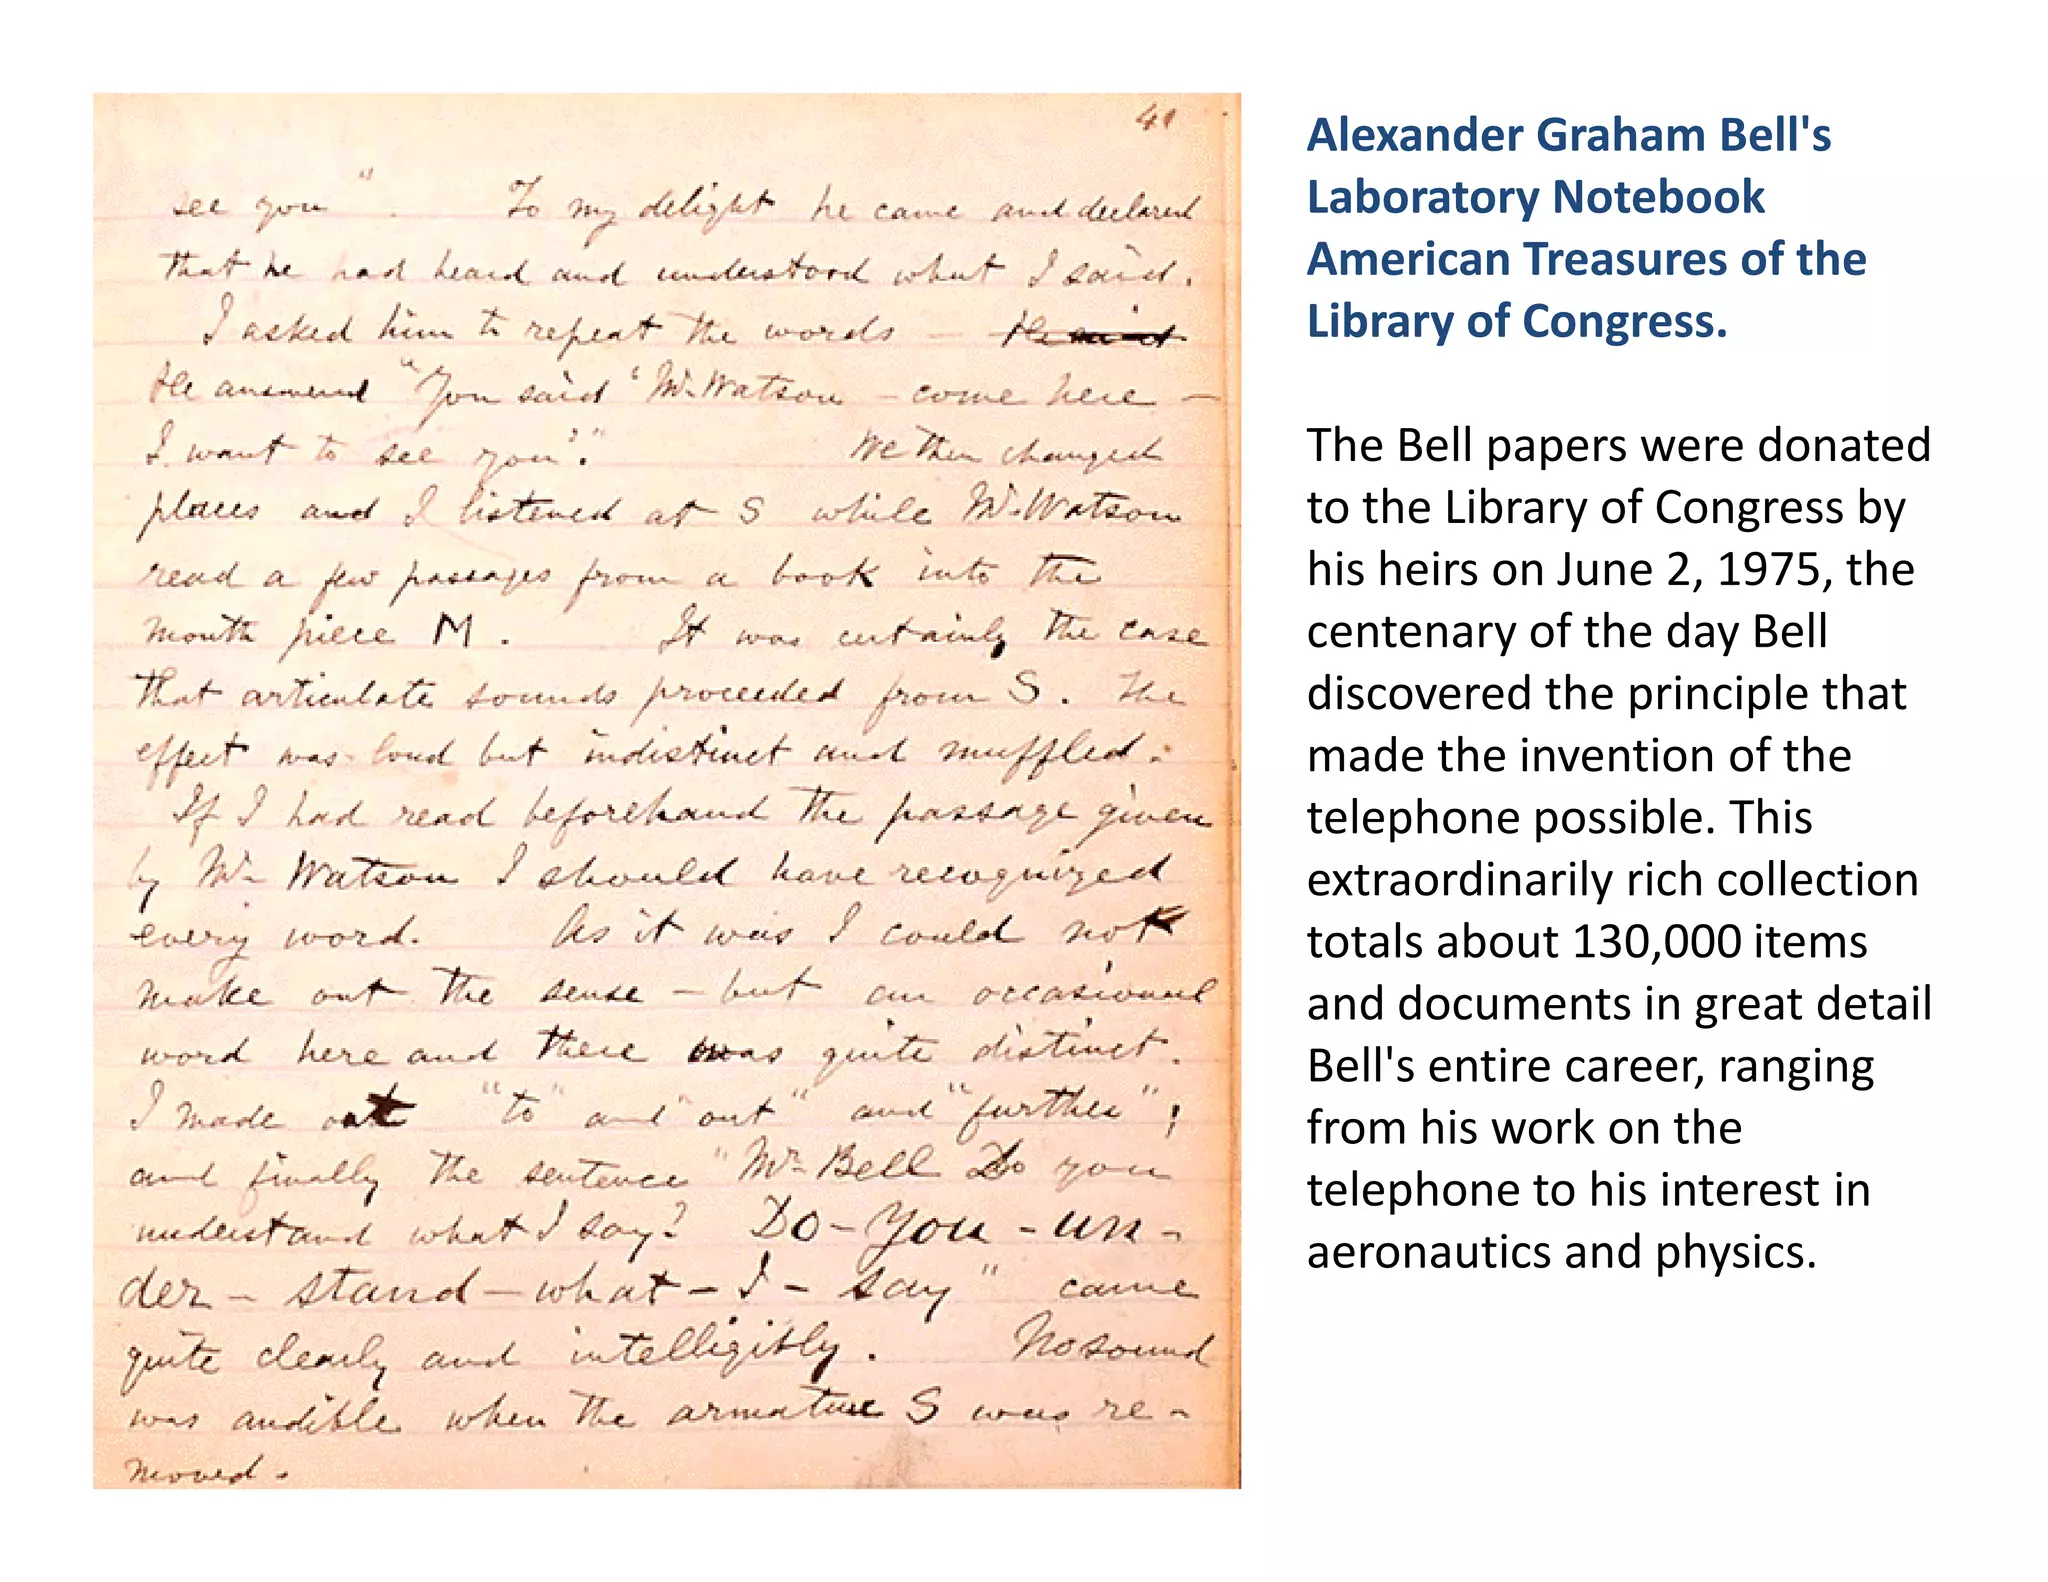 41
see you". To my delight he came and declared
that he had heard and understood what I said.
I asked him to repeat the words – He said
He answered "You said 'Mr. Watson – come here –
I want to see you'." We then changed
places and I listened at S while Mr. Watson
read a few passages from a book into the
mouth piece M. It was certainly the case
that articulate sounds proceeded from S. The
effect was loud but indistinct and muffled.
If I had read beforehand the passage given
by Mr. Watson I should have recognized
every word. As it was I could not
make out the sense – but an occasional
word here and there was quite distinct.
I made out "to" and "out" and "further";
and finally the sentence "Mr. Bell Do you
understand what I say? Do-you-un-
der-stand-what-I-say" came
quite clearly and intelligibly. No sound
was audible when the armature S was re-
moved.
Alexander Graham Bell's
Laboratory Notebook
American Treasures of the
Library of Congress.
The Bell papers were donated
to the Library of Congress by
his heirs on June 2, 1975, the
centenary of the day Bell
discovered the principle that
made the invention of the
telephone possible. This
extraordinarily rich collection
totals about 130,000 items
and documents in great detail
Bell's entire career, ranging
from his work on the
telephone to his interest in
aeronautics and physics.